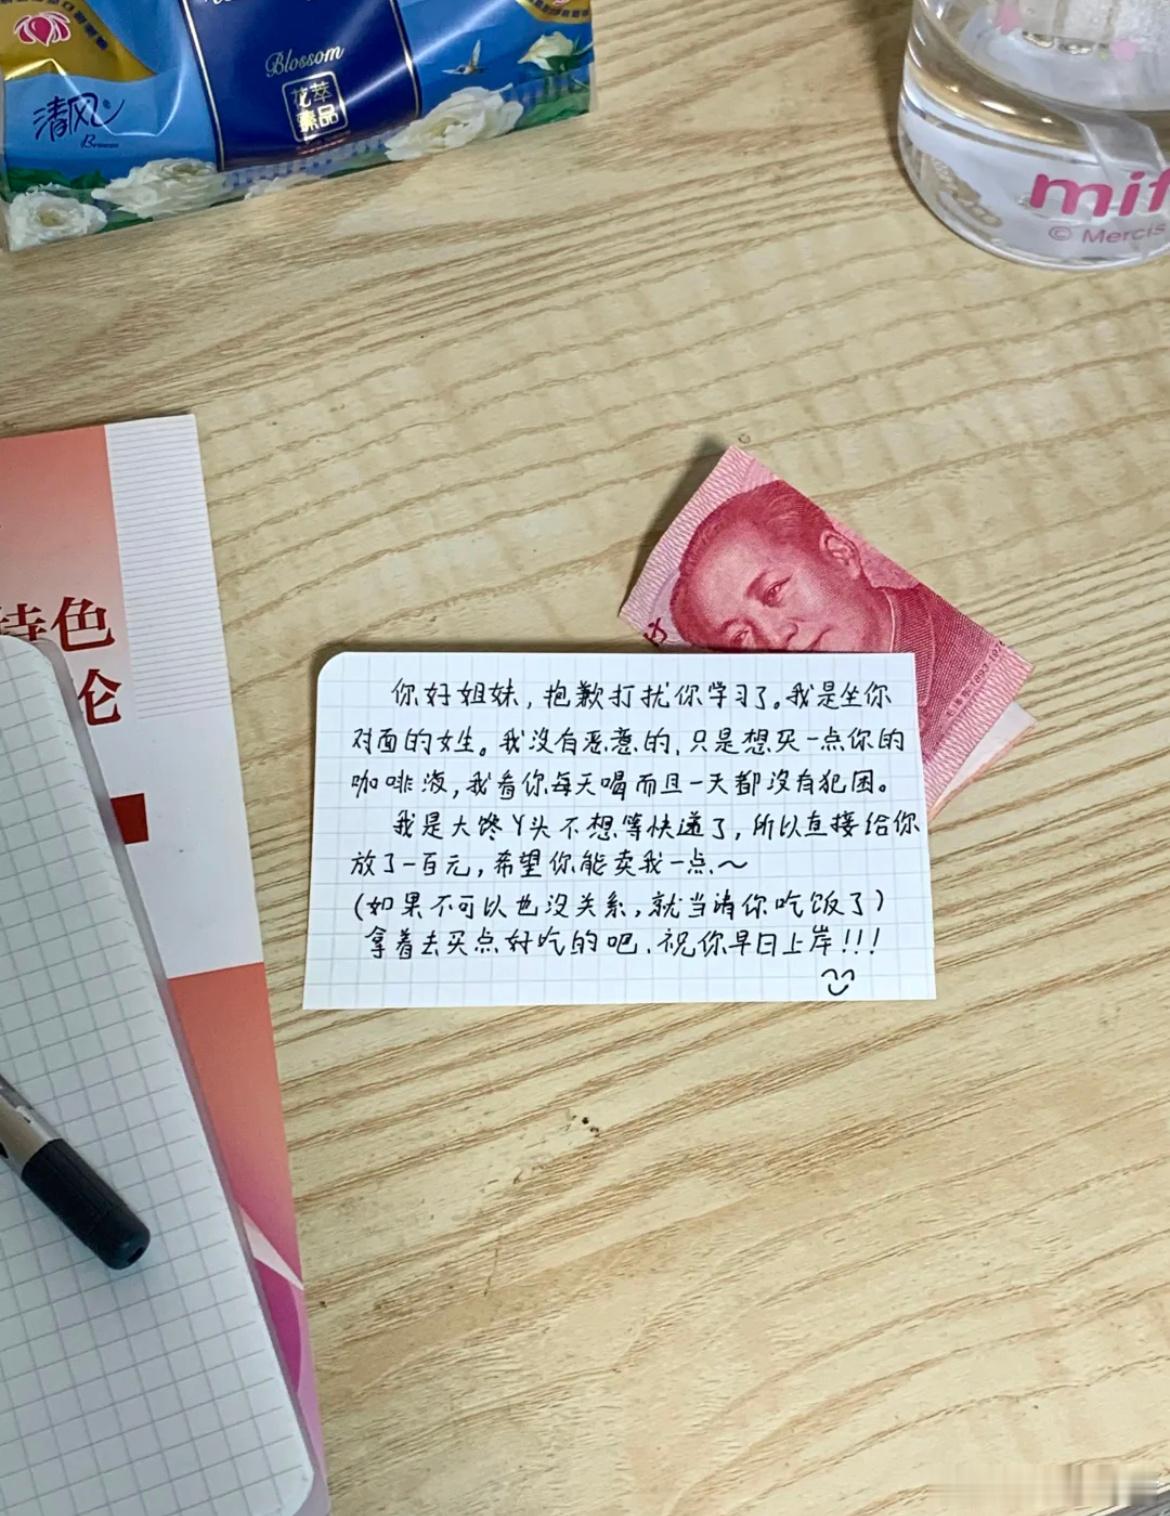 Blossom
花萃
臻品
清风
Breeze
mif
© Mercis
特色
论
1893-197
你好姐妹，抱歉打扰你学习了。我是坐你
对面的女生。我没有恶意的，只是想买一点你的
咖啡液，我看你每天喝而且一天都没有犯困。
我是大馋丫头不想等快递了，所以直接给你
放了一百元，希望你能卖我一点～
(如果不可以也没关系，就当请你吃饭了)
拿着去买点好吃的吧，祝你早日上岸!!!